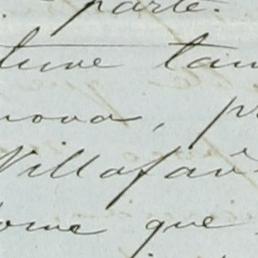 parte.
tuve tam
nova, p
Villafañ
ome que